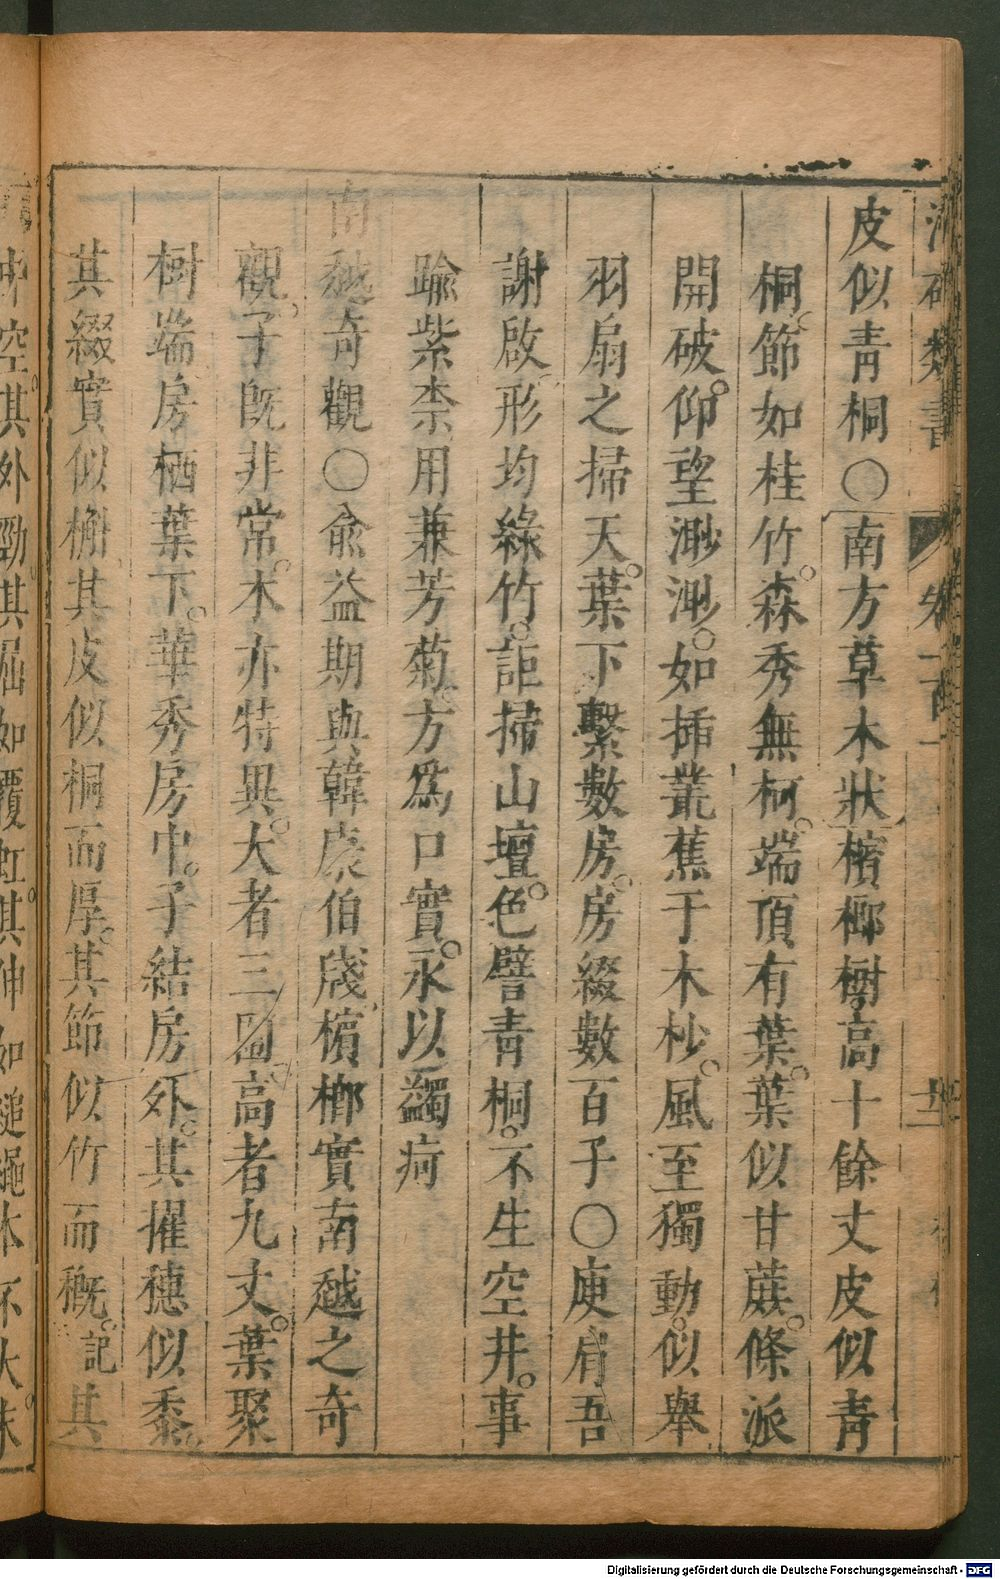 皮似青桐〇南方草木狀檳榔樹高十餘丈皮似青
桐節如桂竹森秀無柯端頂有葉葉似甘蕉條派
開破仰望渺渺如插叢蕉于木杪風至獨動似舉
羽扇之掃天葉下繫數房房綴數百子〇庾肩吾
謝啟形均綠竹詎掃山壇色譬青桐不生空井事
踰紫柰用兼芳菊方爲口實永以蠲疴
南越奇觀〇俞益期與韓康伯牋檳榔實南越之奇
觀子既非常木亦特異大者三圍高者九丈葉聚
樹端房栖葉下華秀房中子結房外其擢穗似黍
其綴實似槲其皮似桐而厚其節似竹而穊記其
中空其外勁其屈如覆虹其伸如縋繩本不大末
類書 卷一百 十
Digitalisierung gefördert durch die Deutsche Forschungsgemeinschaft - DFG